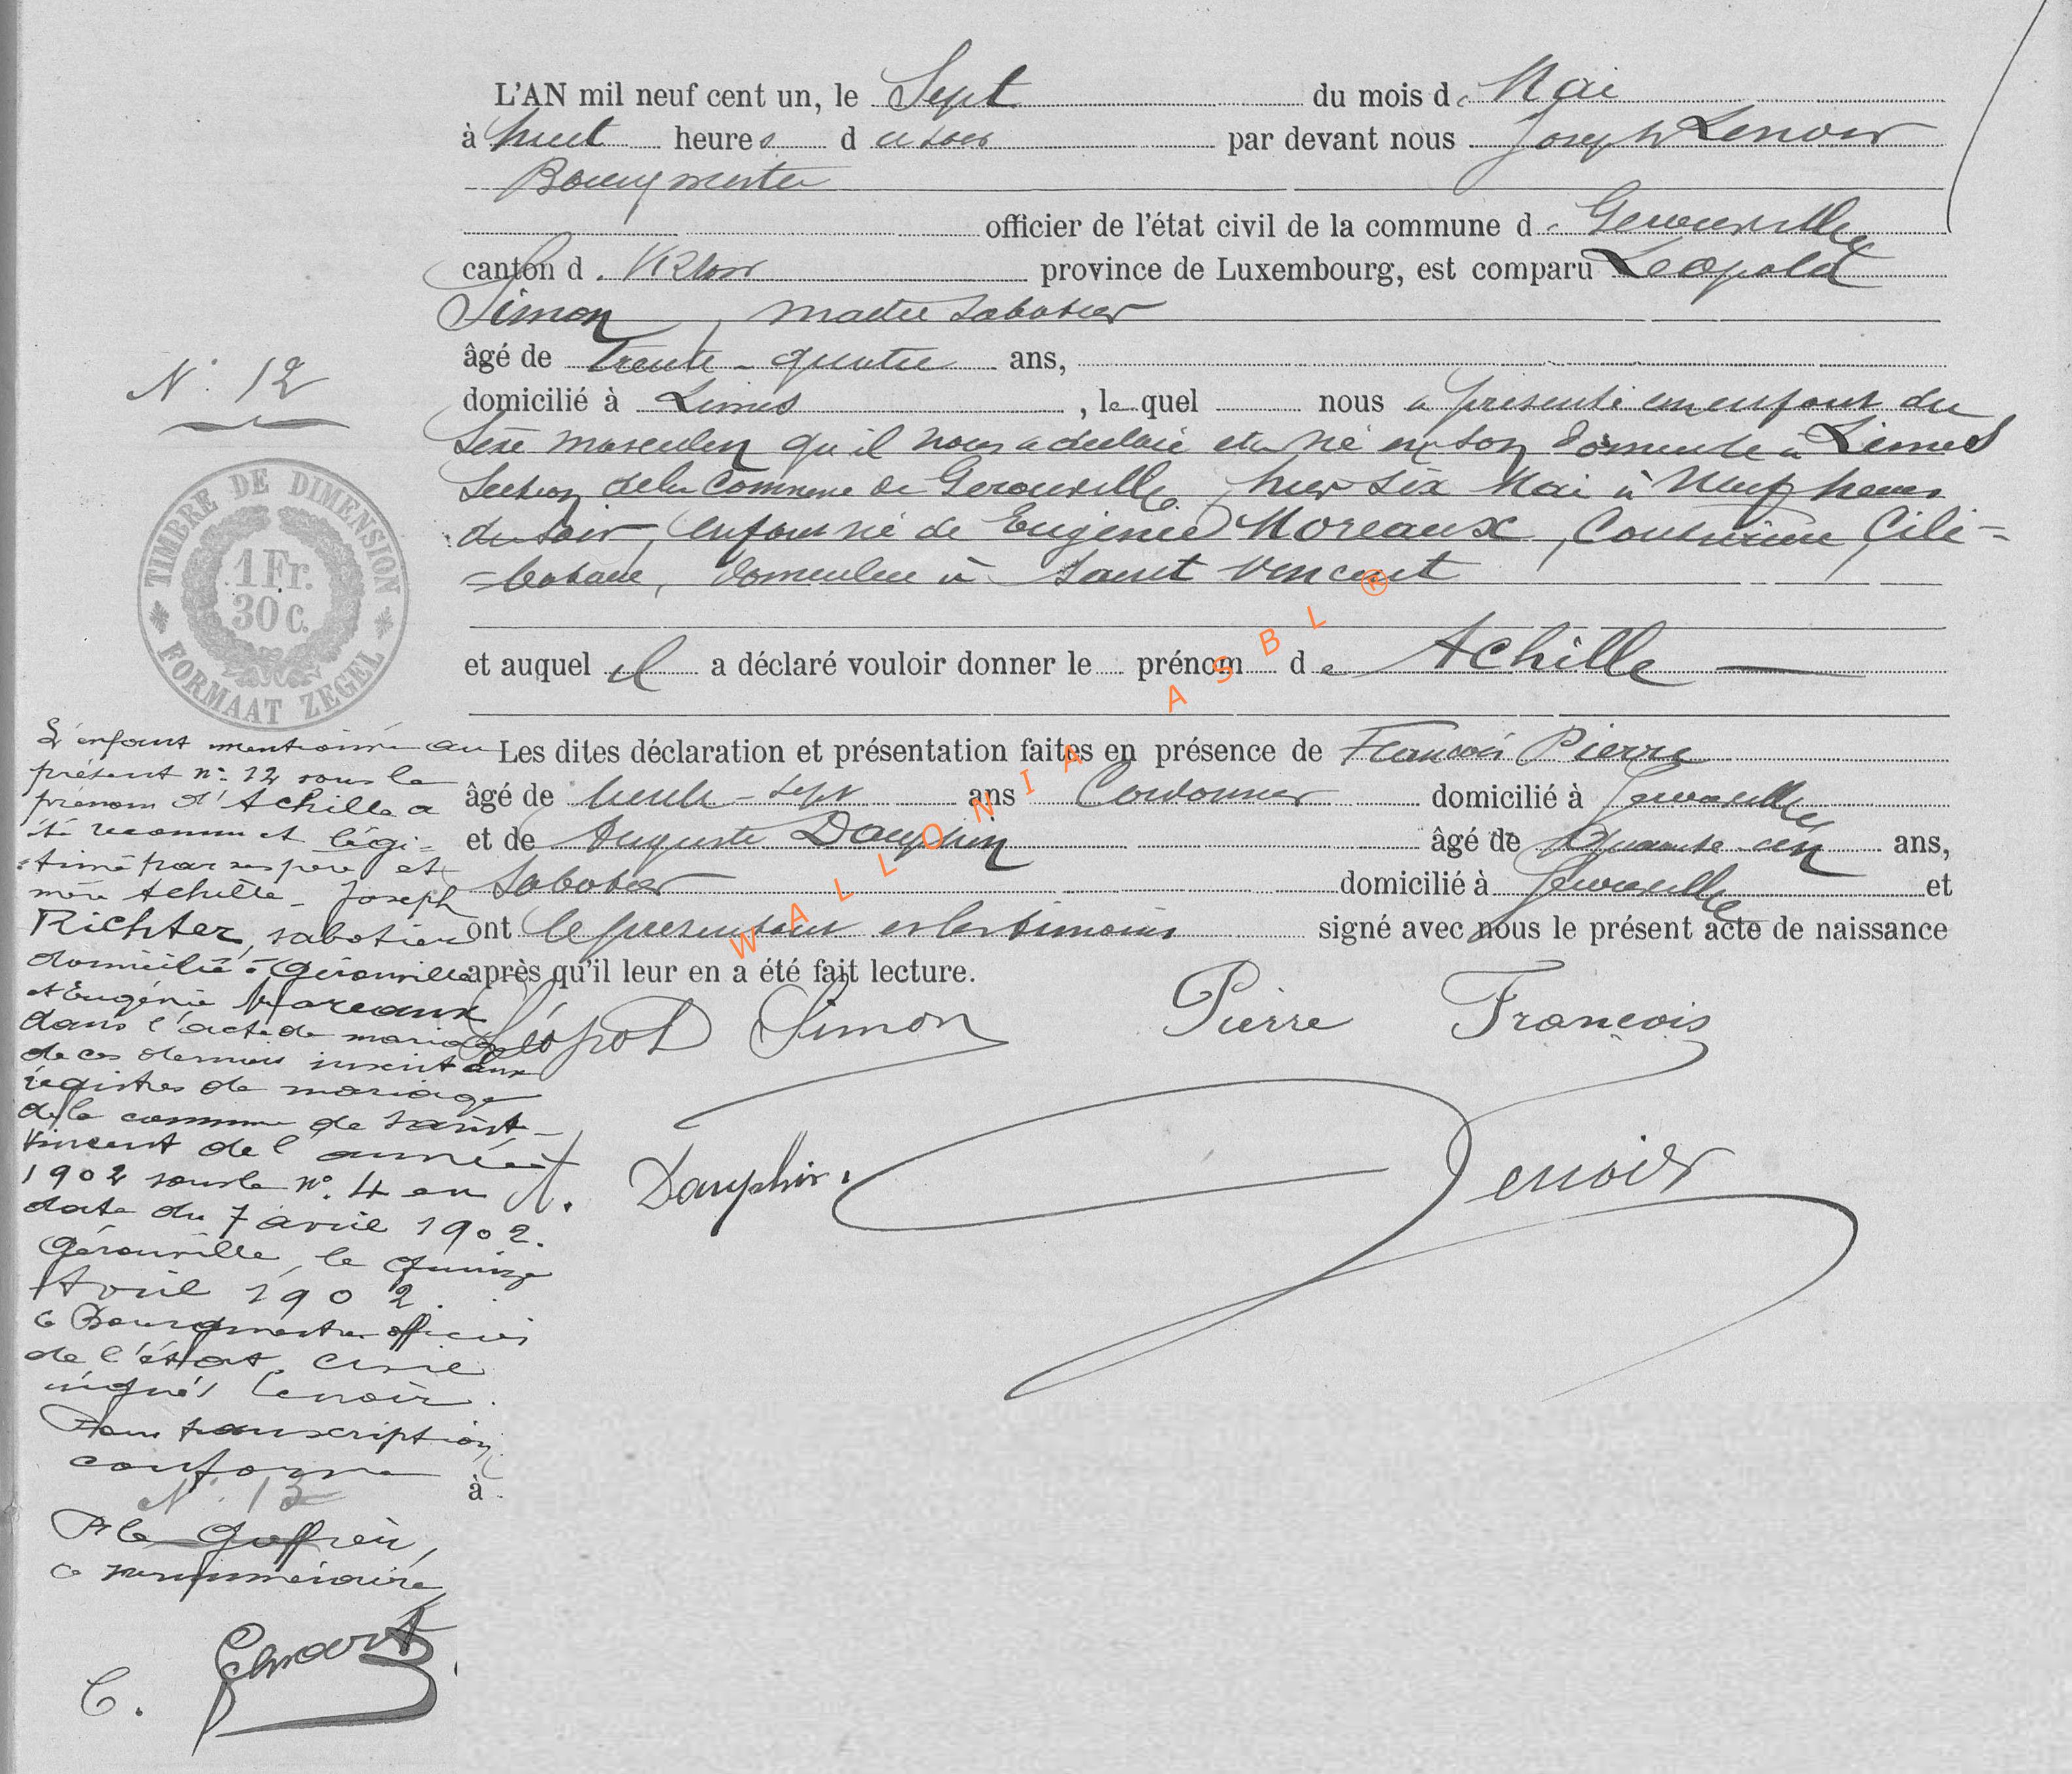 L'AN mil neuf cent un, le Sept du mois de Mai
à huit heures du soir par devant nous Joseph Lenoir
Bourgmestre
officier de l'état civil de la commune de Gerouville
canton de Virton province de Luxembourg, est comparu Leopold
Simon, maitre sabotier
âgé de trente-quatre ans,
domicilié à Limes, lequel nous a présenté un enfant du
sexe masculin qu'il nous a déclaré etre né en son domicile à Limes
section de la Commune de Gerouville, hier six Mai à Neuf heures
du soir, enfant né de Eugénie Moreaux, Couturière, Céli-
-bataire, domiciliée à Saint Vincent
et auquel il a déclaré vouloir donner le prénom de Achille
Les dites déclaration et présentation faites en présence de Francois Pierre
âgé de trente-sept ans Cordonnier domicilié à Gerouville
et de Auguste Dauphin âgé de Quarante-un ans,
Sabotier domicilié à Gerouville et
ont le présentant et les témoins signé avec nous le présent acte de naissance
après qu'il leur en a été fait lecture.
Léopold Simon Pierre Francois
A. Dauphin. Lenoir
N° 12
TIMBRE DE DIMENSION
1 Fr.
30 c.
FORMAAT ZEGEL
L'enfant mentionné au
présent n° 12 sous le
prénom d'Achille a
été reconnu et légi-
timé par ses père et
mère Achille-Joseph
Richter, sabotier
domicilié à Gérouville
et Eugénie Moreaux
dans l'acte de mariage
de ces derniers inscrit aux
registres de mariage
de la commune de Saint-
Vincent de l'année
1902 sous le n° 4 en
date du 7 avril 1902.
Gérouville, le quinze
Avril 1902.
Le Bourgmestre officier
de l'état civil
signé Lenoir.
Pour transcription
conforme
N° 13
à
Pr le Greffier,
Le surnuméraire
C.
WALLONIA ASBL ®